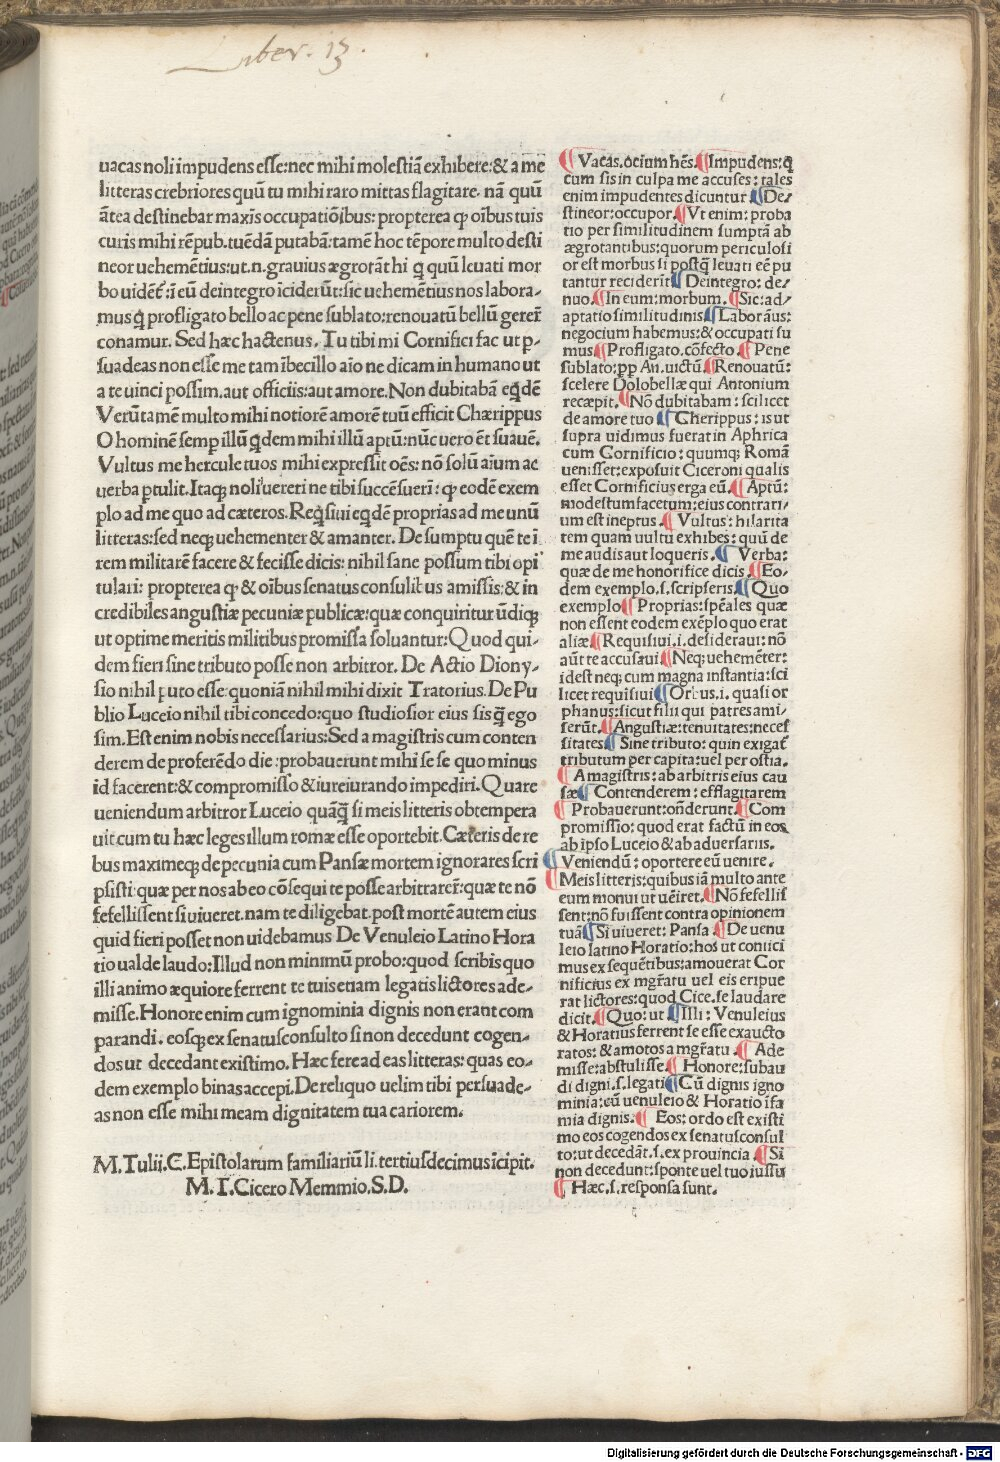 Liber. 13.
uacas noli impudens esse:nec mihi molestiā exhibere:& a me
litteras crebriores quū tu mihi raro mittas flagitare. nā quū
ātea destinebar maxis occupatiōibus: propterea ꝙ oībus tuis
curis mihi rēpub. tuēdā putabā:tamē hoc tēpore multo desti
neor uehemētius:ut.n.grauius ægrotāt hi ꝗ quū leuati mor
bo uidēt̄:ī eū deintegro īciderūt:sic uehemētius nos labora-
mus ꝗ profligato bello ac pene sublato:renouatū bellū gerer̄
conamur. Sed hæc hactenus. Tu tibi mi Cornifici fac ut p-
suadeas non esse me tam ībecillo aīo ne dicam in humano ut
a te uinci possim.aut officiis:aut amore. Non dubitabā eꝗdē
Verūtamē multo mihi notiorē amorē tuū efficit Chærippus
O hominē semp illū ꝗdem mihi illū aptū:nūc uero ēt suauē.
Vultus me hercule tuos mihi expressit oēs: nō solū aīum ac
uerba ptulit.Itaq; noli uereri ne tibi succēsueri: ꝙ eodē exem
plo ad me quo ad cæteros. Reꝗsiui eꝗdē proprias ad me unū
litteras:sed neq; uehementer & amanter. De sumptu quē te ī
rem militarē facere & fecisse dicis: nihil sane possum tibi opi
tulari: propterea ꝙ & oībus senatus consulibus amissis:& in
credibiles angustiæ pecuniæ publicæ:quæ conquiritur ūdiq;
ut optime meritis militibus promissa soluantur:Quod qui-
dem fieri sine tributo posse non arbitror. De Actio Diony-
sio nihil puto esse:quoniā nihil mihi dixit Tratorius.De Pu
blio Luceio nihil tibi concedo:quo studiosior eius sis ꝗ̄ ego
sim.Est enim nobis necessarius:Sed a magistris cum conten
derem de proferēdo die:probauerunt mihi se se quo minus
id facerent:& compromisso & iureiurando impediri.Quare
ueniendum arbitror Luceio quāꝗ̄ si meis litteris obtempera
uit cum tu hæc leges illum romæ esse oportebit.Cæteris de re
bus maximeq; de pecunia cum Pansæ mortem ignorares scri
psisti:quæ per nos ab eo cōsequi te posse arbitrarer̄:quæ te nō
fefellissent si uiueret.nam te diligebat.post mortē autem eius
quid fieri posset non uidebamus De Venuleio Latino Hora
tio ualde laudo:Illud non minimū probo:quod scribis quo
illi animo æquiore ferrent te tuis etiam legatis lictores ade-
misse.Honore enim cum ignominia dignis non erant com
parandi. eosq; ex senatusconsulto si non decedunt cogen-
dos ut decedant existimo. Hæc fere ad eas litteras: quas eo-
dem exemplo binas accepi.De reliquo uelim tibi persuade-
as non esse mihi meam dignitatem tua cariorem.
M.Tulii.C.Epistolarum familiariū li.tertiusdecimus īcipit.
M.T.Cicero Memmio.S.D.
Vacas.ocium hēs.Impudens:ꝗ
cum sis in culpa me accuses:tales
enim impudentes dicuntur De-
stineor:occupor.Vt enim: proba
tio per similitudinem sumptā ab
ægrotantibus:quorum periculosi
or est morbus si postꝗ leuati eē pu
tantur reciderīt Deintegro: de-
nuo.In eum:morbum.Sic:ad-
aptatio similitudinis Laborāus:
negocium habemus:& occupati su
mus Profligato.cōfecto. Pene
sublato:pp An.uictū.Renouatū:
scelere Dolobellæ qui Antonium
recæpit.Nō dubitabam: scilicet
de amore tuo Cherippus: is ut
supra uidimus fuerat in Aphrica
cum Cornificio: quumq; Romā
uenisset:exposuit Ciceroni qualis
esset Cornificius erga eū. Aptū:
modestum facetum:eius contrari-
um est ineptus. Vultus: hilarita
tem quam uultu exhibes: quū de
me audis aut loqueris. Verba:
quæ de me honorifice dicis.Eo-
dem exemplo.s.scripseris.Quo
exemplo Proprias:spēales quæ
non essent eodem exēplo quo erat
aliæ.Requisiui.i.desideraui: nō
aūt te accusaui.Neq; uehemēter:
idest neq; cum magna instantia:sci
licet requisiui Orbus.i.quasi or
phanus:sicut filii qui patres ami-
serūt.Angustiæ:tenuitates:necef
sitates Sine tributo: quin exigat̄
tributum per capita:uel per ostia.
A magistris:ab arbitris eius cau
sæ Contenderem: efflagitarem
Probauerunt:oñderunt.Com
promissio:quod erat factū in eos
ab ipso Luceio & ab aduersariis.
Veniendū: oportere eū uenire.
Meis litteris:quibus iā multo ante
eum monui ut uēiret.Nō fefellis
sent:nō fuissent contra opinionem
tuā Si uiueret: Pansa De uenu
leio latino Horatio: hos ut coniici
mus ex sequētibus:amouerat Cor
nificius ex mgr̄atu uel eis eripue
rat lictores:quod Cice.se laudare
dicit.Quo:ut.Illi: Venuleius
& Horatius ferrent se esse exaucto
ratos: & amotos a mgr̄atu. Ade
misse:abstulisse. Honore:subau
di digni.s.legati Cū dignis igno
minia:eū uenuleio & Horatio īfa
mia dignis. Eos: ordo est existi
mo eos cogendos ex senatusconsul
to:ut decedāt.s.ex prouincia Si
non decedunt:sponte uel tuo iussu
Hæc.s.responsa sunt.
Digitalisierung gefördert durch die Deutsche Forschungsgemeinschaft - DFG